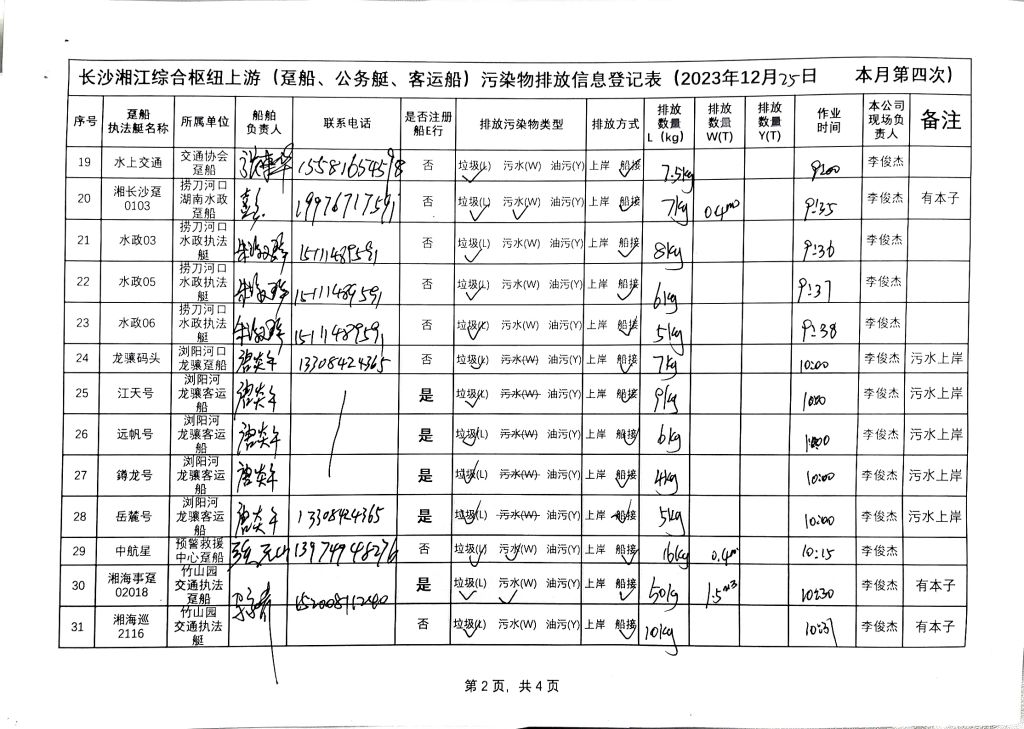 长沙湘江综合枢纽上游（趸船、公务艇、客运船）污染物排放信息登记表（2023年12月25日 本月第四次）
序号 趸船执法艇名称 所属单位 船舶负责人 联系电话 是否注册船E行 排放污染物类型 排放方式 排放数量L（kg） 排放数量W(T) 排放数量Y(T) 作业时间 本公司现场负责人 备注
19 水上交通 交通协会趸船 15581654598 否 垃圾(L) 污水(W) 油污(Y) 上岸 船接 7.5kg 9:00 李俊杰
20 湘长沙趸0103 捞刀河口湖南水政趸船 19976717591 否 垃圾(L) 污水(W) 油污(Y) 上岸 船接 7kg 0.4m³ 9:35 李俊杰 有本子
21 水政03 捞刀河口水政执法艇 15111489591 否 垃圾(L) 污水(W) 油污(Y) 上岸 船接 8kg 9:36 李俊杰
22 水政05 捞刀河口水政执法艇 15111489591 否 垃圾(L) 污水(W) 油污(Y) 上岸 船接 6kg 9:37 李俊杰
23 水政06 捞刀河口水政执法艇 15111489591 否 垃圾(L) 污水(W) 油污(Y) 上岸 船接 5kg 9:38 李俊杰
24 龙骧码头 浏阳河口龙骧趸船 13308424365 否 垃圾(L) 污水(W) 油污(Y) 上岸 船接 7kg 10:00 李俊杰 污水上岸
25 江天号 浏阳河龙骧客运船 是 垃圾(L) 污水(W) 油污(Y) 上岸 船接 9kg 10:00 李俊杰 污水上岸
26 远帆号 浏阳河龙骧客运船 是 垃圾(L) 污水(W) 油污(Y) 上岸 船接 6kg 10:00 李俊杰 污水上岸
27 鐏龙号 浏阳河龙骧客运船 是 垃圾(L) 污水(W) 油污(Y) 上岸 船接 4kg 10:00 李俊杰 污水上岸
28 岳麓号 浏阳河龙骧客运船 13308424365 是 垃圾(L) 污水(W) 油污(Y) 上岸 船接 5kg 10:00 李俊杰 污水上岸
29 中航星 预警救援中心趸船 13974948276 否 垃圾(L) 污水(W) 油污(Y) 上岸 船接 16kg 0.4m³ 10:15 李俊杰
30 湘海事趸02018 竹山园交通执法趸船 是 垃圾(L) 污水(W) 油污(Y) 上岸 船接 50kg 1.5m³ 10:30 李俊杰 有本子
31 湘海巡2116 竹山园交通执法艇 否 垃圾(L) 污水(W) 油污(Y) 上岸 船接 10kg 10:31 李俊杰 有本子
第 2 页，共 4 页